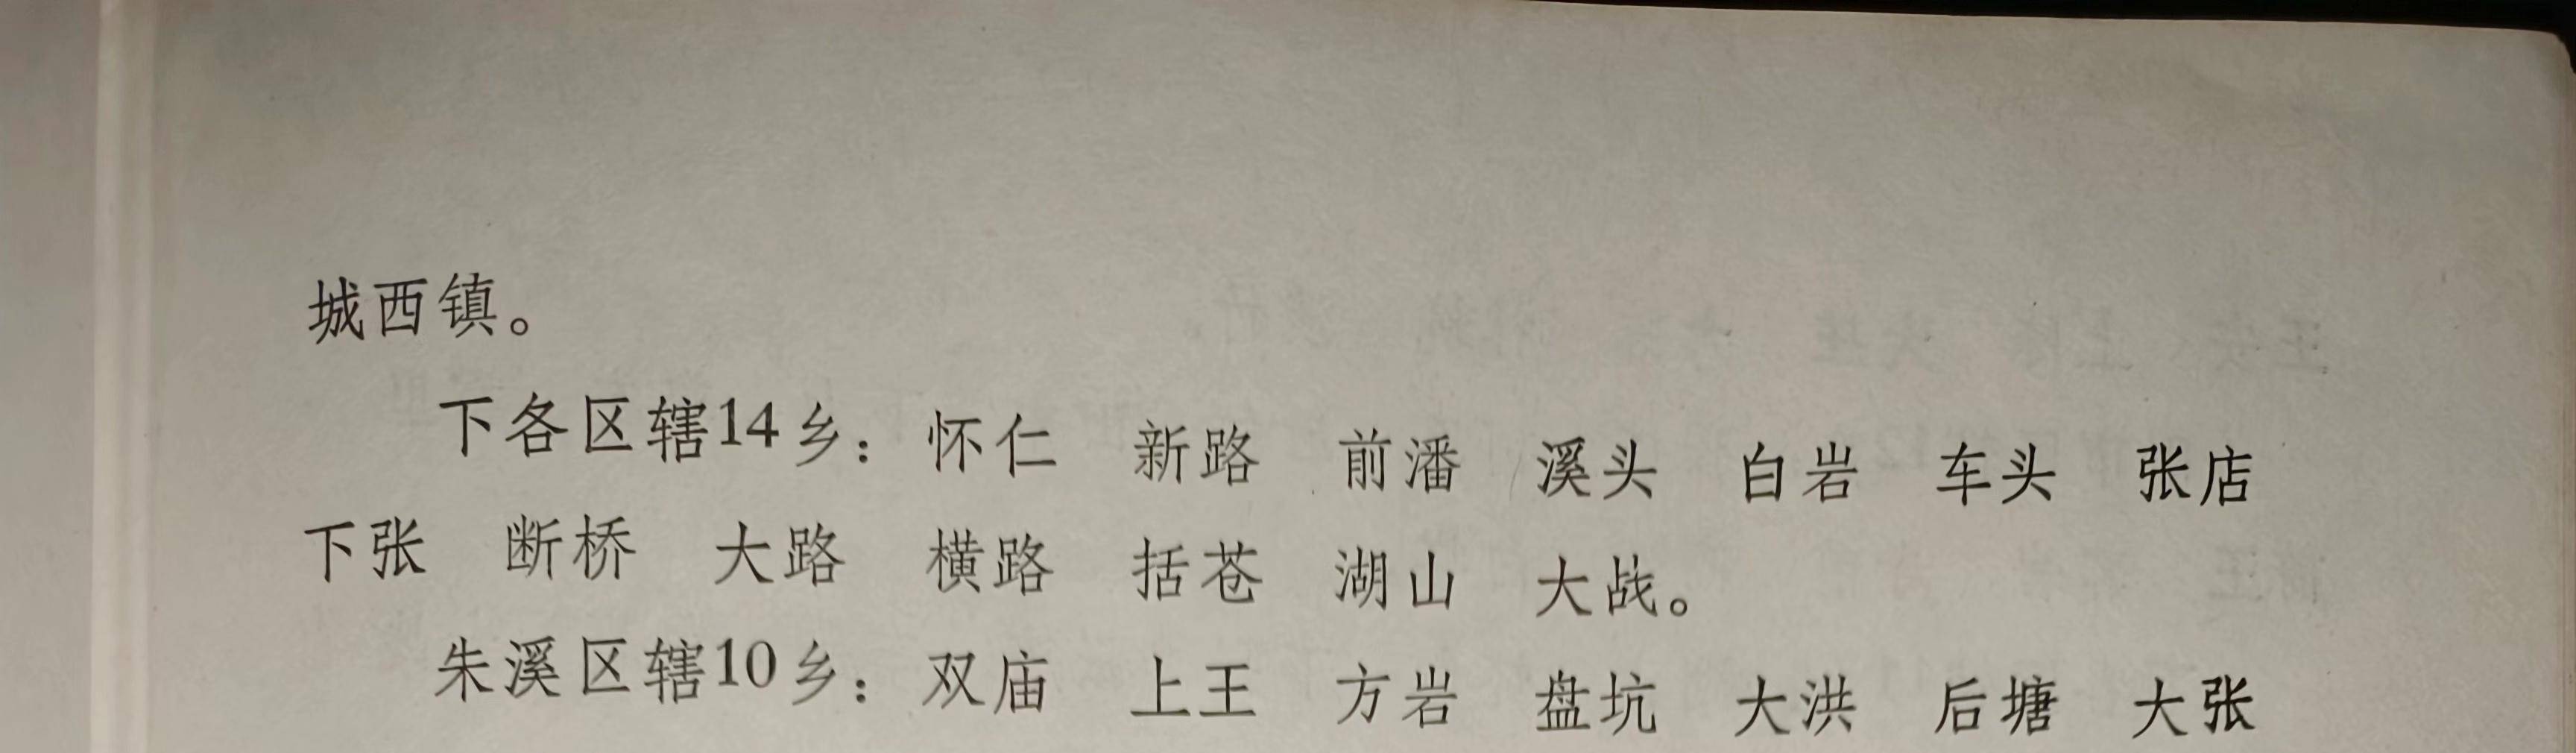 城西镇。
下各区辖14乡：怀仁 新路 前潘 溪头 白岩 车头 张店
下张 断桥 大路 横路 括苍 湖山 大战。
朱溪区辖10乡：双庙 上王 方岩 盘坑 大洪 后塘 大张